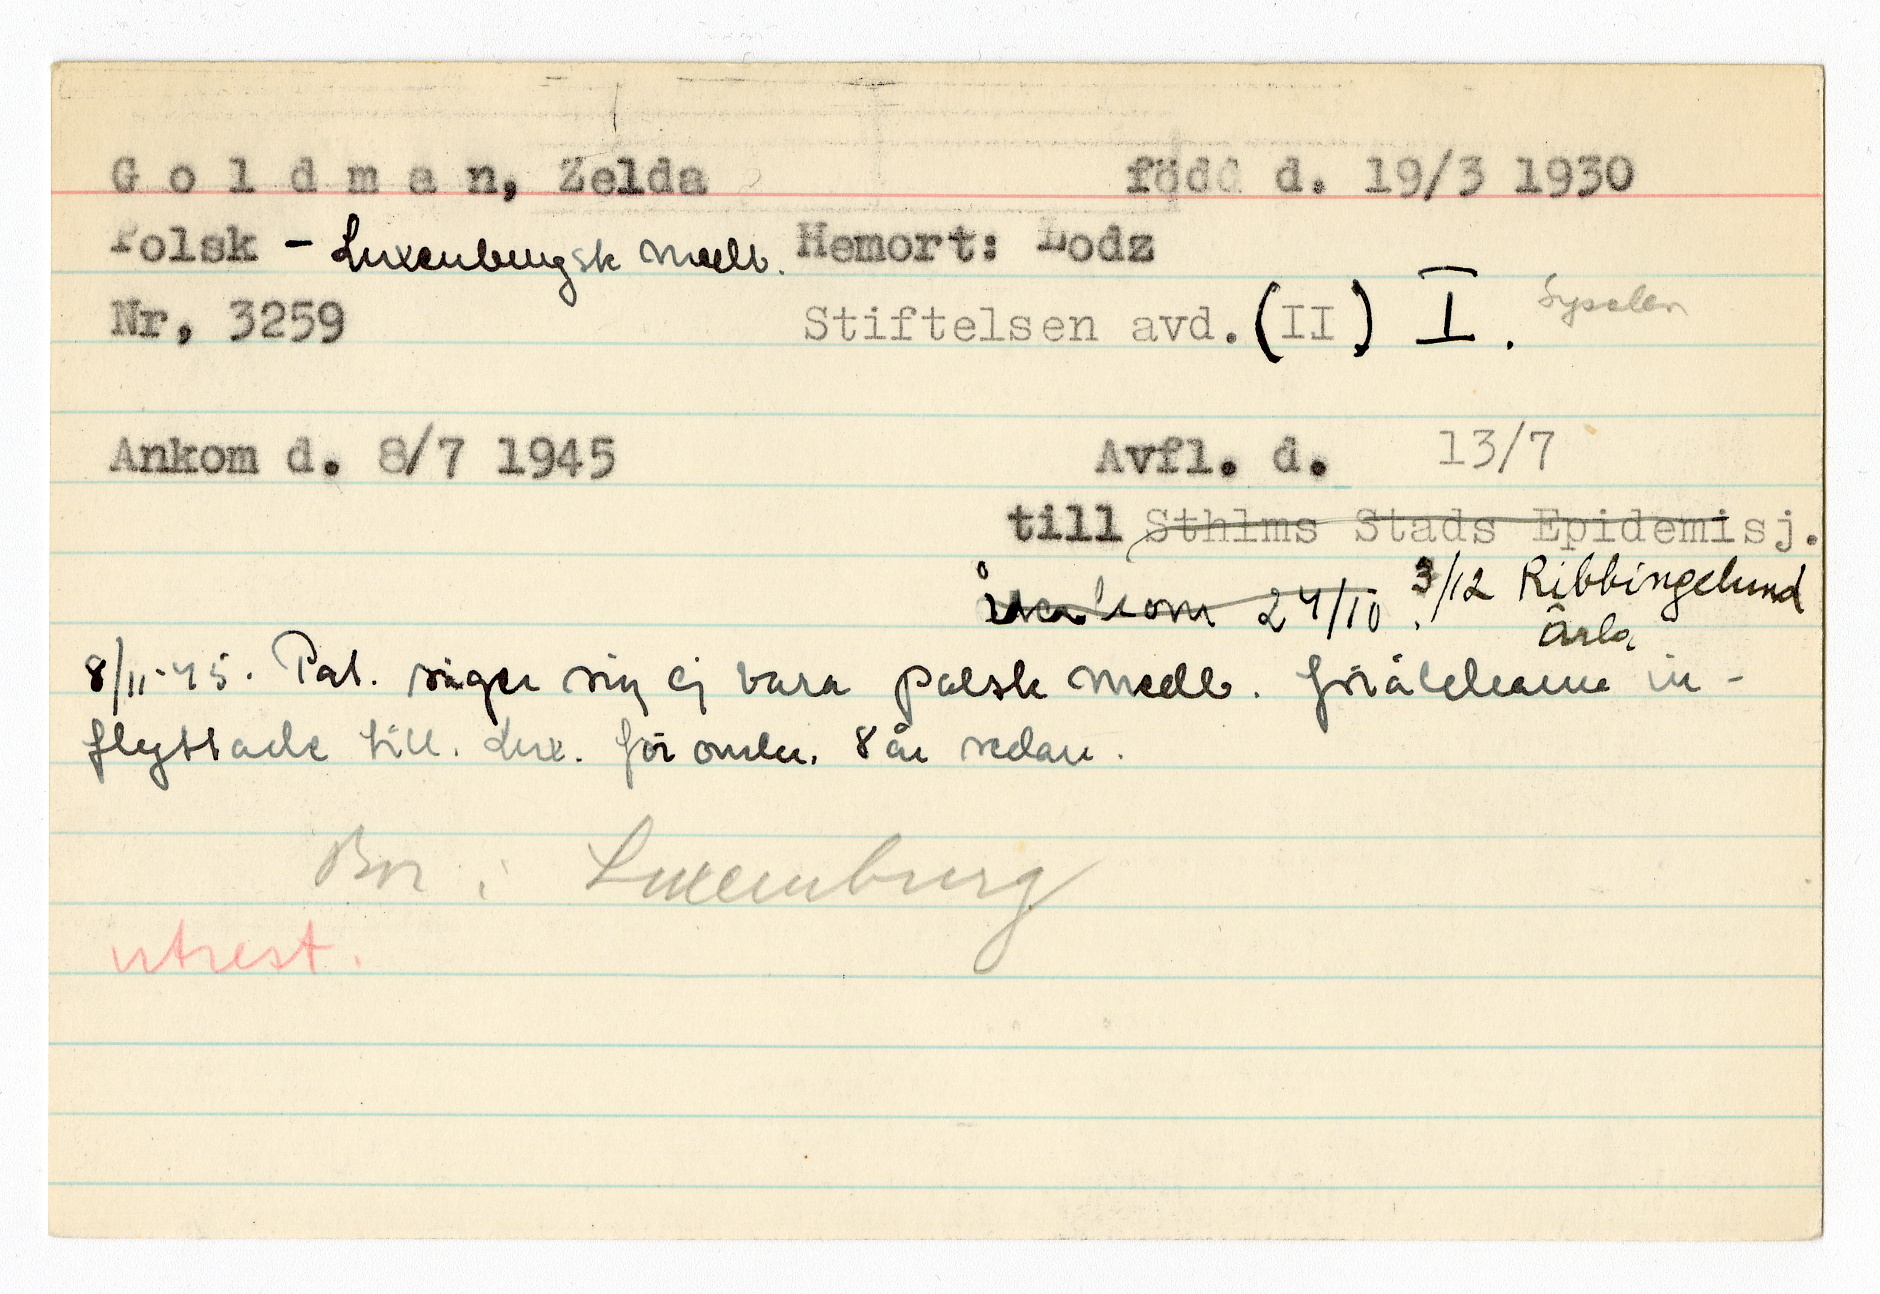 G o l d m a n, Zelda född d. 19/3 1930
Polsk - Luxenburgsk medb. Hemort: Lodz
Nr, 3259 Stiftelsen avd. (II) I.
Ankom d. 8/7 1945 Avfl. d. 13/7
till Sthlms Stads Epidemisj.
återkom 24/10. 3/12 Ribbingelund
Ärla
8/11-45. Pat. säger sig ej vara polsk medb. Föräldrarna in-
flyttade till. Lux. för omkr. 8 år sedan.
Bor i Luxemburg
utrest.